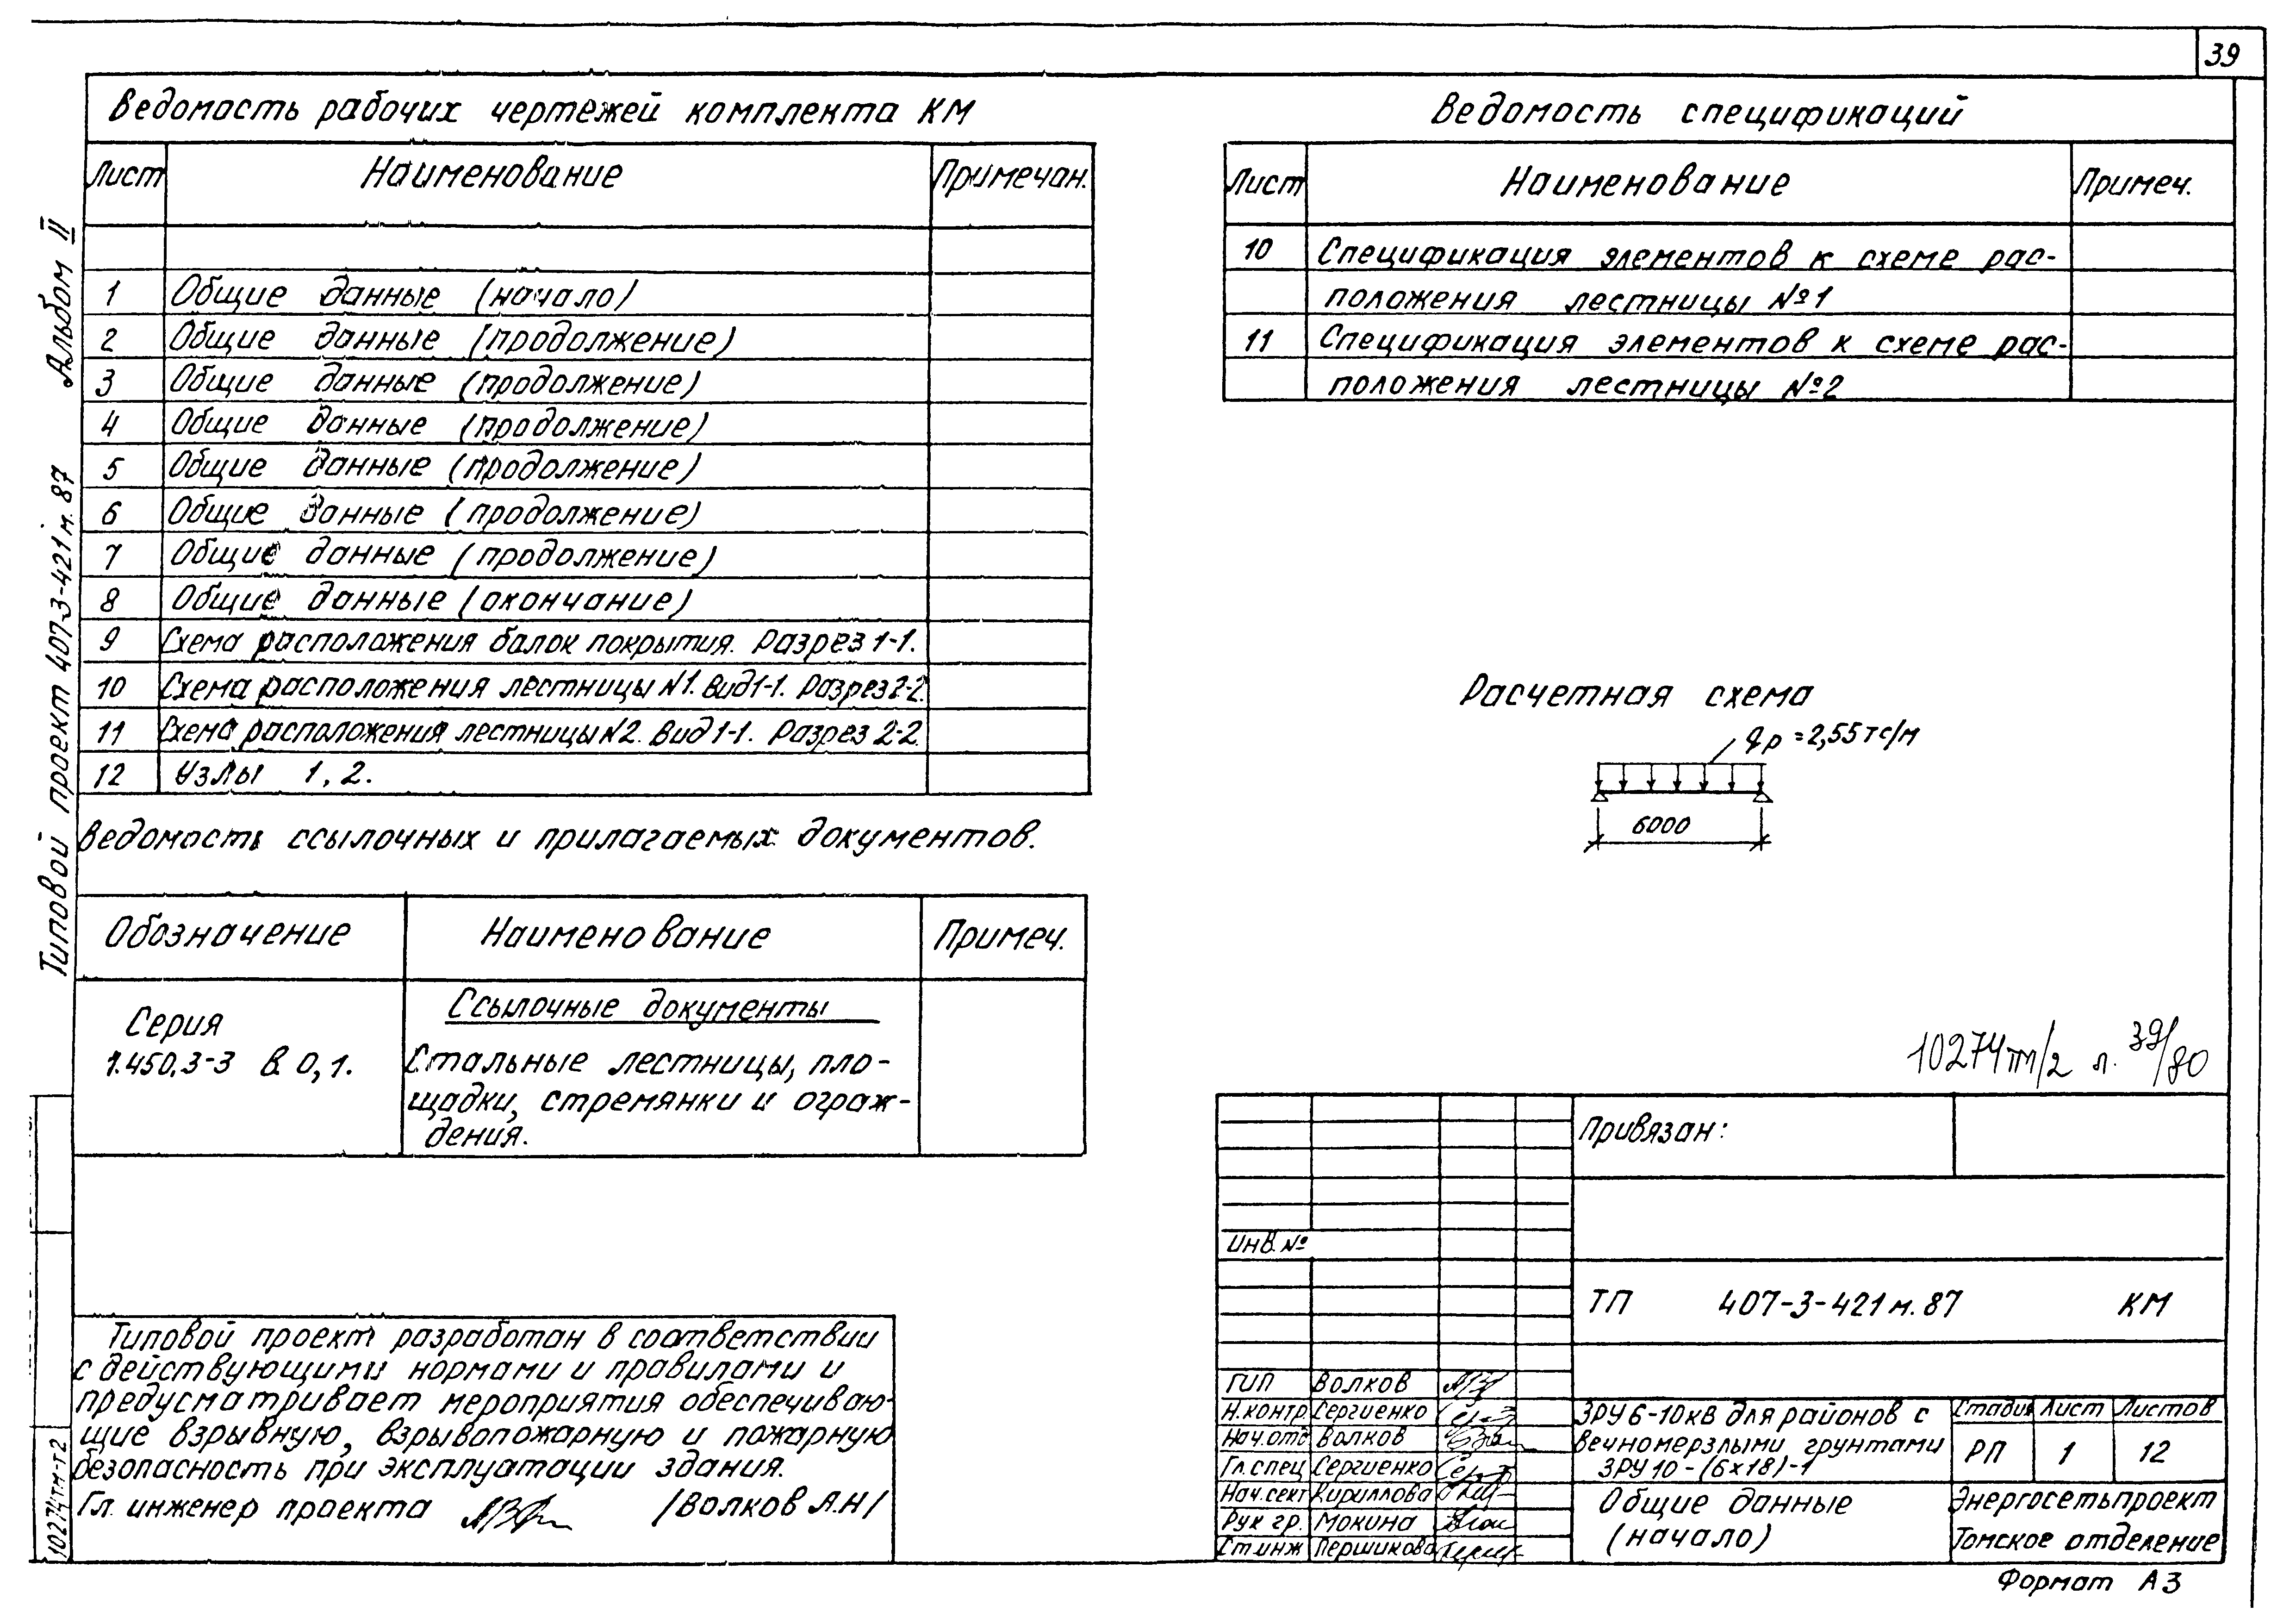 39
Ведомость рабочих чертежей комплекта КМ
Лист Наименование Примечан.
1 Общие данные (начало)
2 Общие данные (продолжение)
3 Общие данные (продолжение)
4 Общие данные (продолжение)
5 Общие данные (продолжение)
6 Общие данные (продолжение)
7 Общие данные (продолжение)
8 Общие данные (окончание)
9 Схема расположения балок покрытия. Разрез 1-1.
10 Схема расположения лестницы N1. Вид 1-1. Разрез 2-2.
11 Схема расположения лестницы N2. Вид 1-1. Разрез 2-2.
12 Узлы 1, 2.
Ведомость ссылочных и прилагаемых документов.
Обозначение Наименование Примеч.
Ссылочные документы
Серия
1.450.3-3 В. 0, 1. Стальные лестницы, пло-
щадки, стремянки и ограж-
дения.
Типовой проект разработан в соответствии
с действующими нормами и правилами и
предусматривает мероприятия обеспечиваю-
щие взрывную, взрывопожарную и пожарную
безопасность при эксплуатации здания.
Гл. инженер проекта /Волков А.Н/
Типовой проект 407-3-421м.87 Альбом II
10274тм-т2
Ведомость спецификаций
Лист Наименование Примеч.
10 Спецификация элементов к схеме рас-
положения лестницы №1
11 Спецификация элементов к схеме рас-
положения лестницы №2
Расчетная схема
qр=2,55тс/м
6000
10274тм/2 л. 39/80
Привязан:
Инв. №
ТП 407-3-421м.87 КМ
ГИП Волков
Н.контр. Сергиенко
Нач.отд Волков
Гл.спец Сергиенко
Нач.сект Кириллова
Рук гр. Мокина
Ст.инж Першикова
ЗРУ 6-10кВ для районов с
вечномерзлыми грунтами
ЗРУ 10-(6х18)-1
Стадия Лист Листов
РП 1 12
Общие данные
(начало)
Энергосетьпроект
Томское отделение
Формат А3